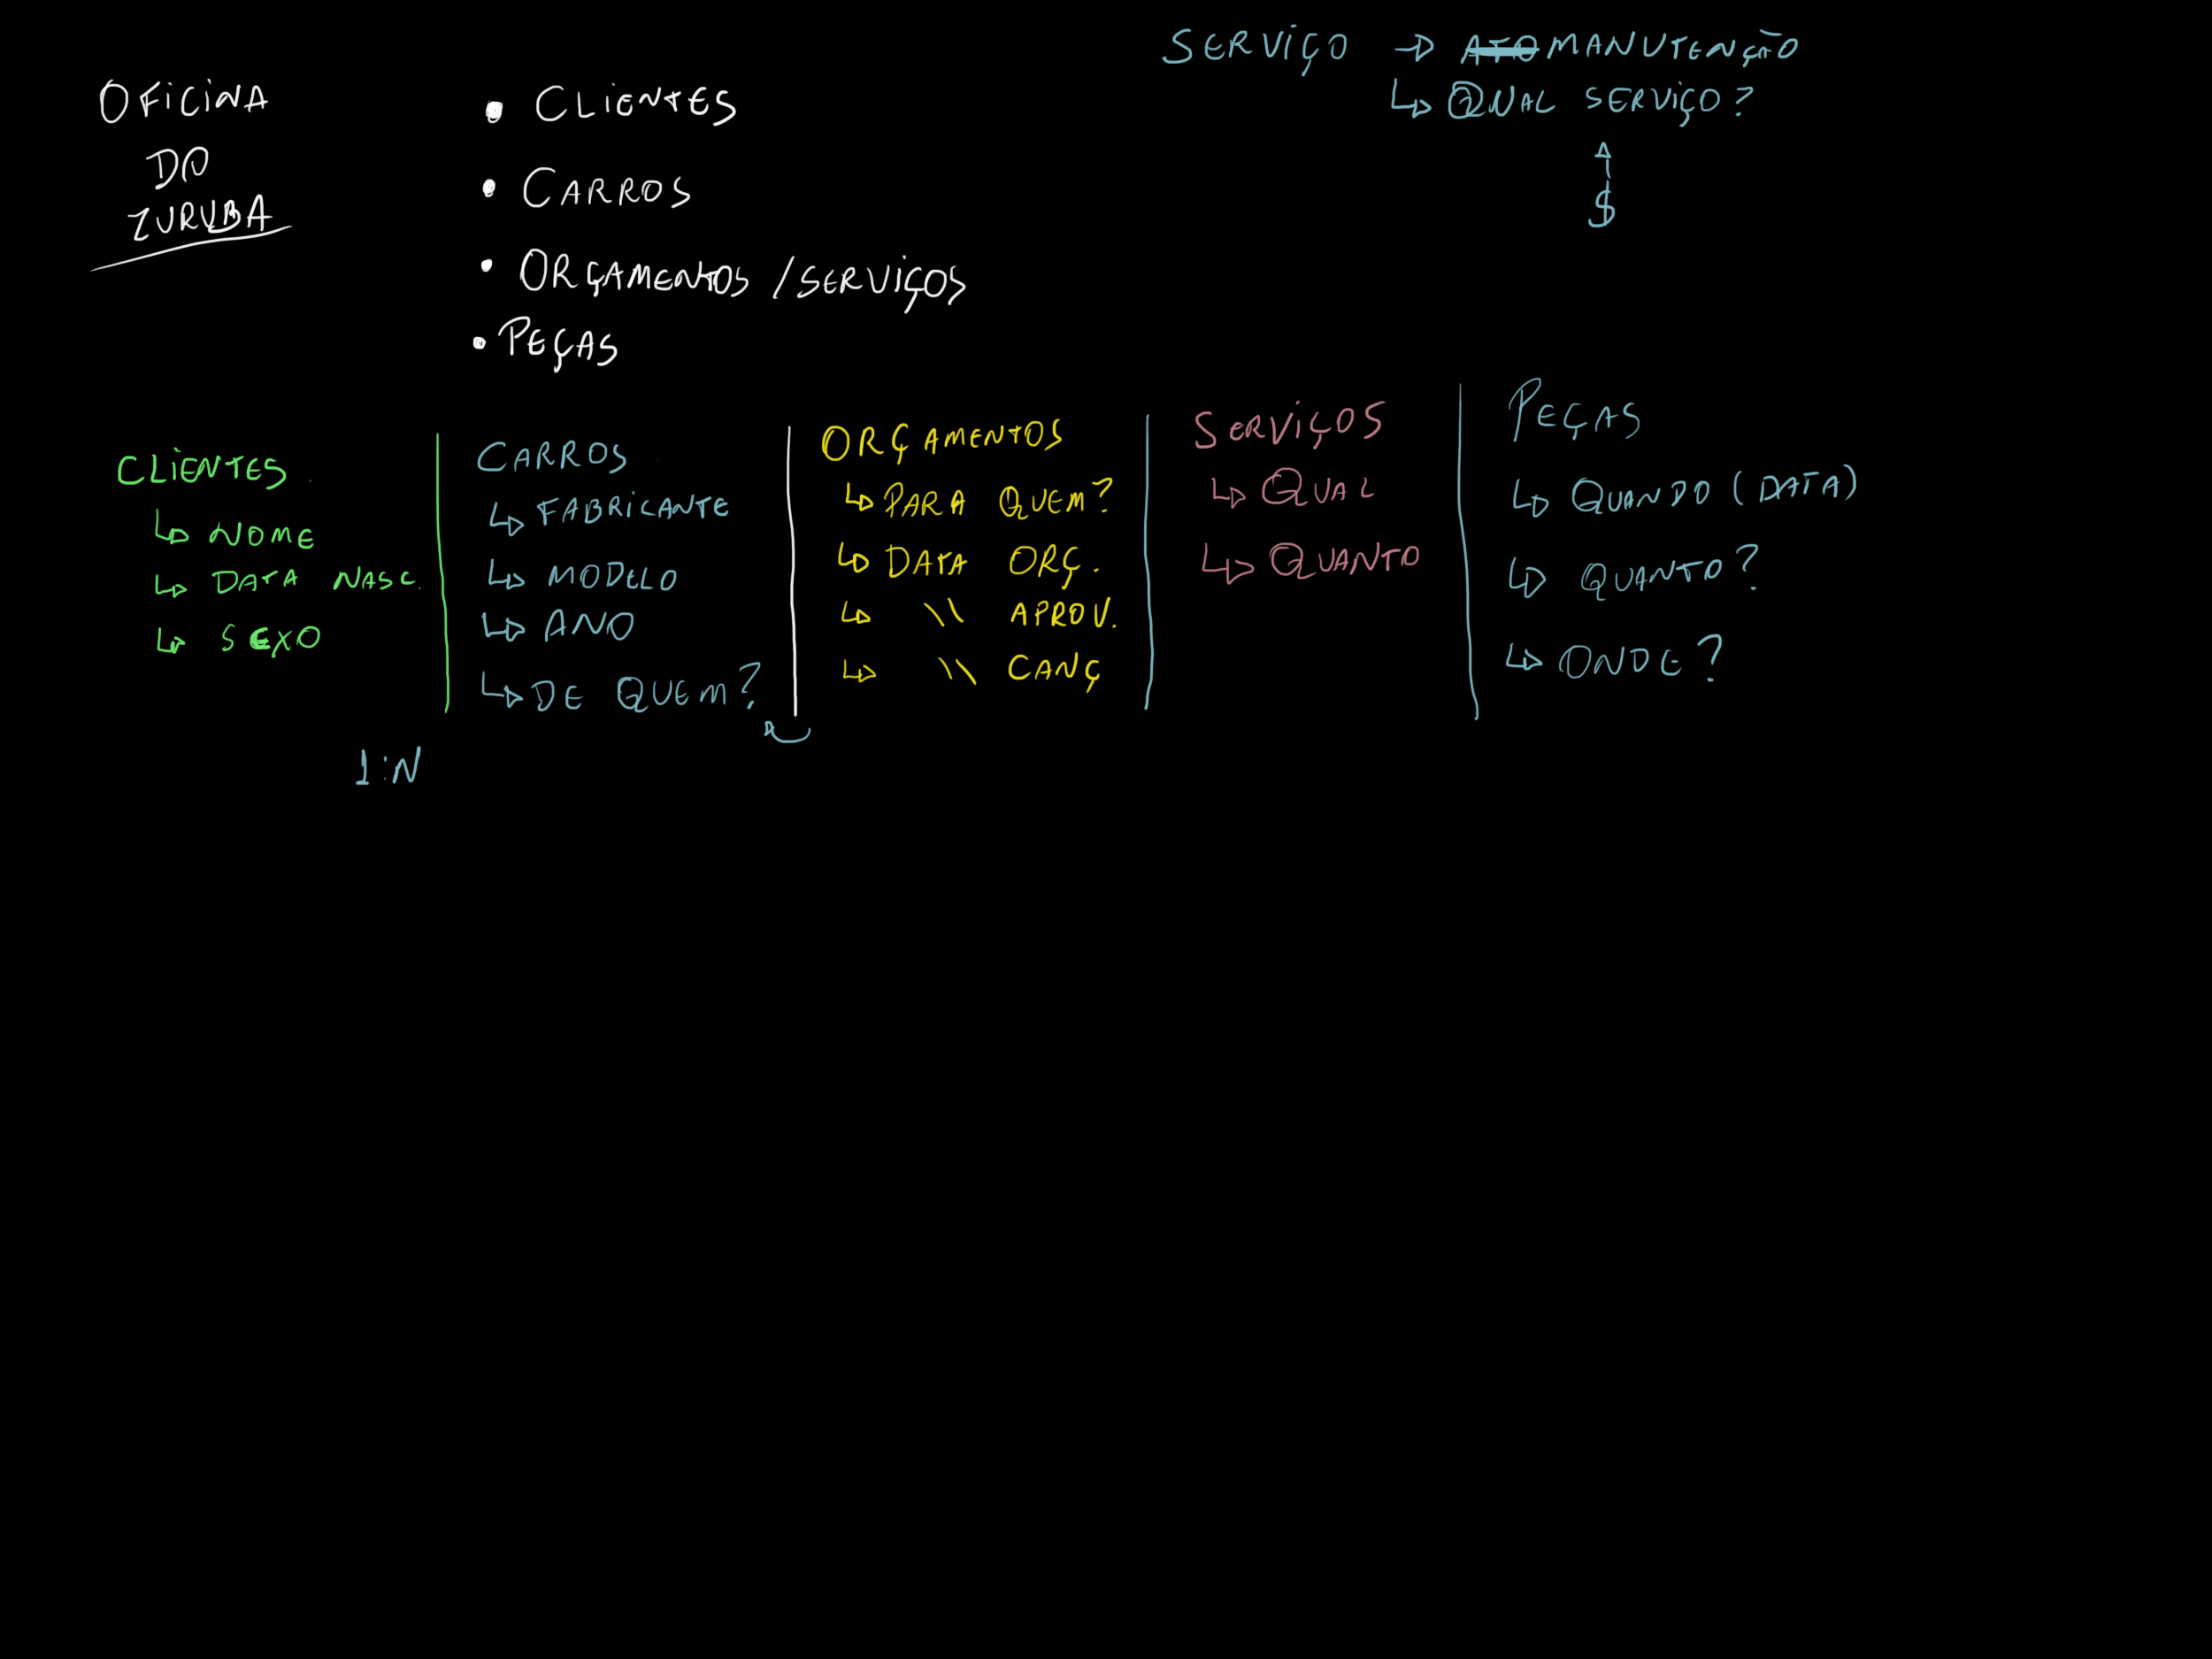 OFICINA
DO
ZURUBA
• CLIENTES
• CARROS
• ORÇAMENTOS / SERVIÇOS
• PEÇAS
SERVIÇO → MANUTENÇÃO
↳ QUAL SERVIÇO?
↑
$
CLIENTES
↳ NOME
↳ DATA NASC.
↳ SEXO
CARROS
↳ FABRICANTE
↳ MODELO
↳ ANO
↳ DE QUEM?
ORÇAMENTOS
↳ PARA QUEM?
↳ DATA ORÇ.
↳ \\ APROV.
↳ \\ CANÇ
SERVIÇOS
↳ QUAL
↳ QUANTO
PEÇAS
↳ QUANDO (DATA)
↳ QUANTO?
↳ ONDE?
1:N